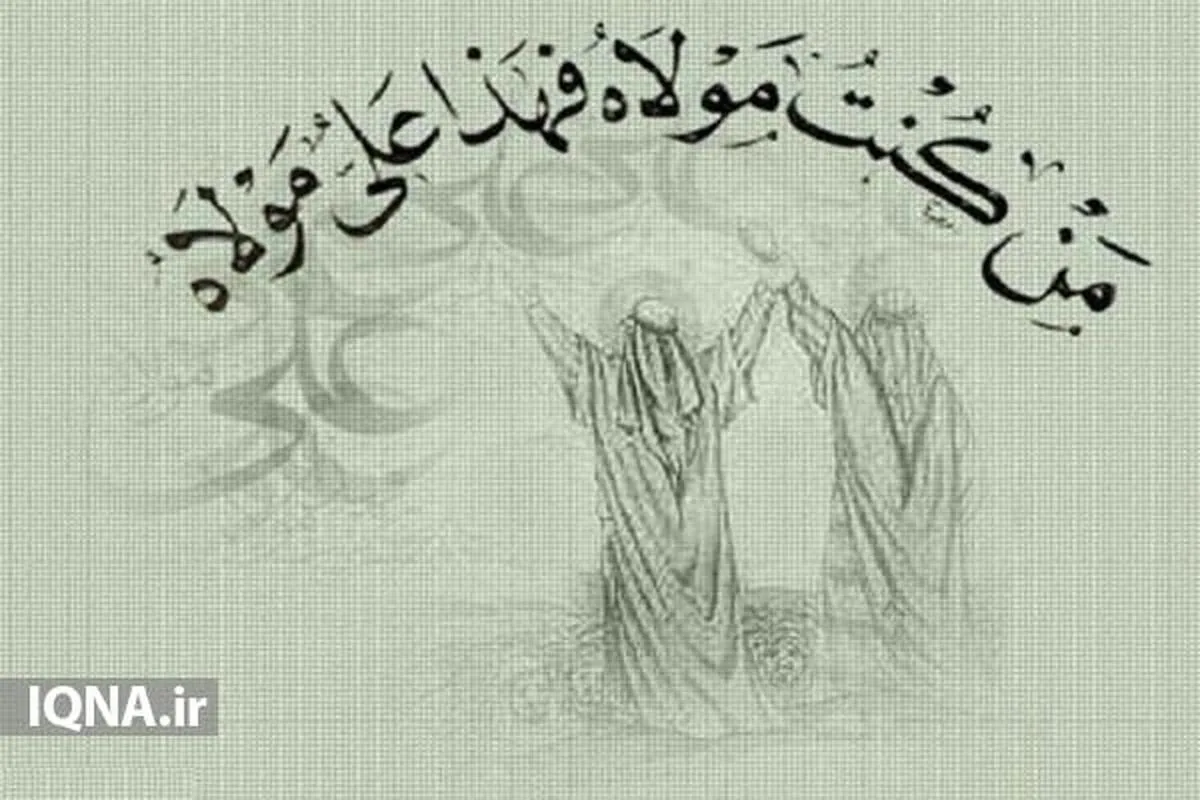 مَنْ كُنْتُ مَوْلَاهُ فَهَذَا عَلِيٌّ مَوْلَاهُ
IQNA.ir